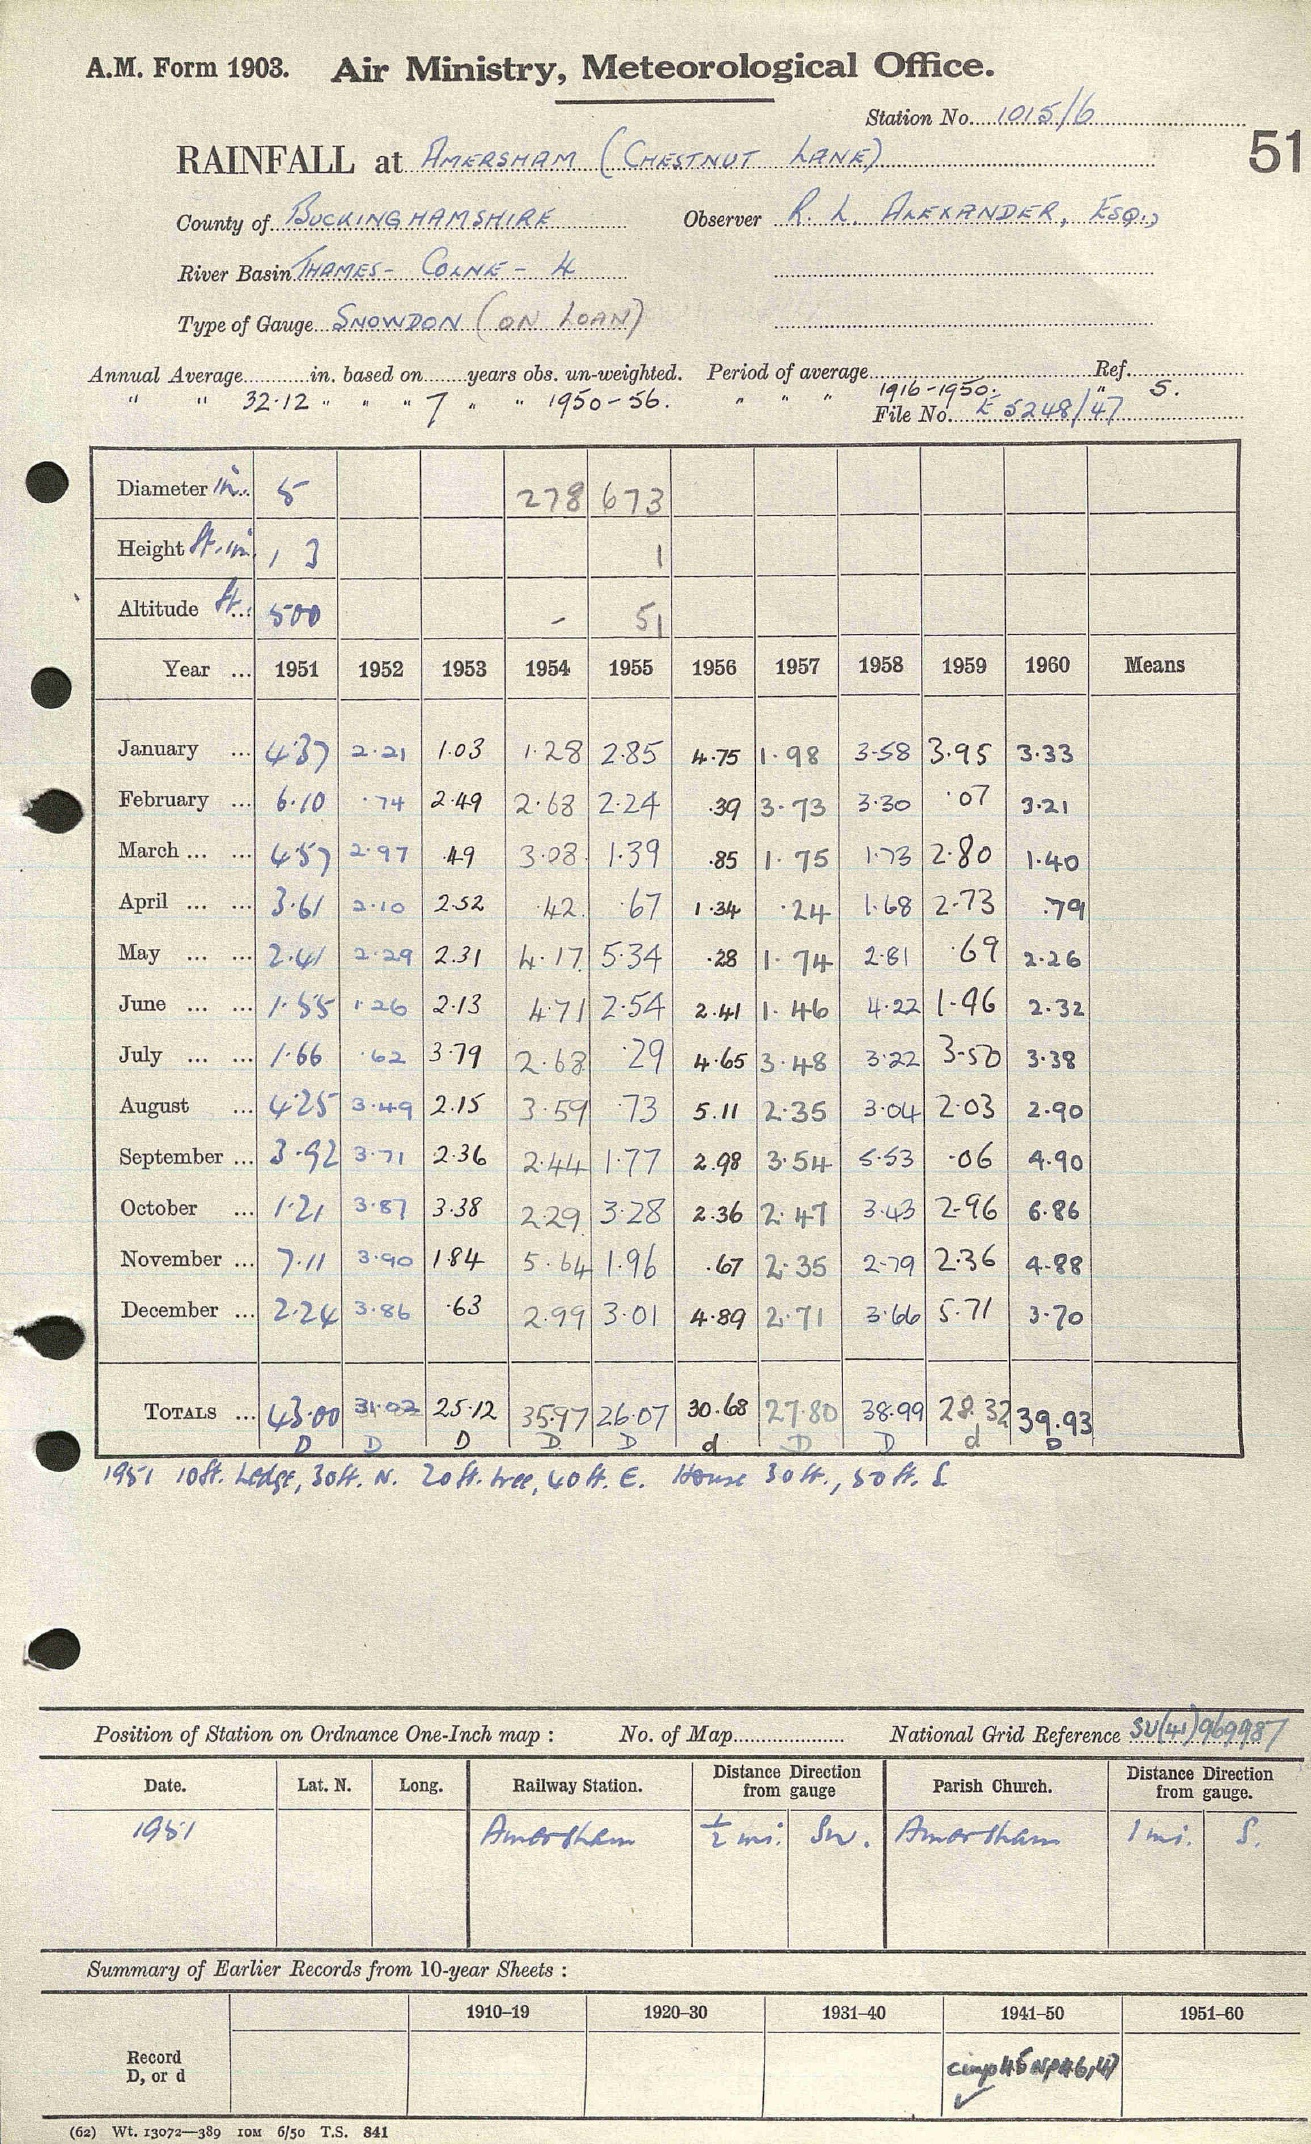 A.M. Form 1903. Air Ministry, Meteorological Office.
Station No. 1015/6
51
RAINFALL at AMERSHAM (CHESTNUT LANE)
County of BUCKINGHAMSHIRE Observer R. L. ALEXANDER, ESQ.,
River Basin THAMES - COLNE - 4
Type of Gauge SNOWDON (ON LOAN)
Annual Average in. based on years obs. un-weighted. Period of average Ref.
" " 32.12 " " " 7 " " 1950-56. " " " 1916-1950. " 5.
File No. E 5248/47
Diameter in. 5 278 673
Height ft. in. 1 3 1
Altitude ft. 500 - 51
Year ... 1951 1952 1953 1954 1955 1956 1957 1958 1959 1960 Means
January ... 4.37 2.21 1.03 1.28 2.85 4.75 1.98 3.58 3.95 3.33
February ... 6.10 .74 2.49 2.68 2.24 .39 3.73 3.30 .07 3.21
March ... ... 4.57 2.97 .49 3.08 1.39 .85 1.75 1.73 2.80 1.40
April ... ... 3.61 2.10 2.52 .42 .67 1.34 .24 1.68 2.73 .79
May ... ... 2.41 2.29 2.31 4.17 5.34 .28 1.74 2.81 .69 2.26
June ... ... 1.55 1.26 2.13 4.71 2.54 2.41 1.46 4.22 1.46 2.32
July ... ... 1.66 .62 3.79 2.68 .29 4.65 3.48 3.22 3.50 3.38
August ... 4.25 3.49 2.15 3.59 .73 5.11 2.35 3.04 2.03 2.90
September ... 3.92 3.71 2.36 2.44 1.77 2.98 3.54 5.53 .06 4.90
October ... 1.21 3.87 3.38 2.29 3.28 2.36 2.47 3.43 2.96 6.86
November ... 7.11 3.90 1.84 5.64 1.96 .67 2.35 2.79 2.36 4.88
December ... 2.24 3.86 .63 2.99 3.01 4.89 2.71 3.66 5.71 3.70
TOTALS ... 43.00 31.02 25.12 35.97 26.07 30.68 27.80 38.99 28.32 39.93
D D D D D d D D d D
1951 10ft. hedge, 30ft. N. 20ft. tree, 40ft. E. House 30ft., 50ft. S
Position of Station on Ordnance One-Inch map : No. of Map National Grid Reference SU(41)969987
Date. Lat. N. Long. Railway Station. Distance from gauge Direction Parish Church. Distance from gauge. Direction
1951 Amersham ½ mi. SW. Amersham 1 mi. S.
Summary of Earlier Records from 10-year Sheets :
1910–19 1920–30 1931–40 1941–50 1951–60
Record
D, or d
comp 45 NP 46, 47
✓
(62) Wt. 13072—389 10M 6/50 T.S. 841